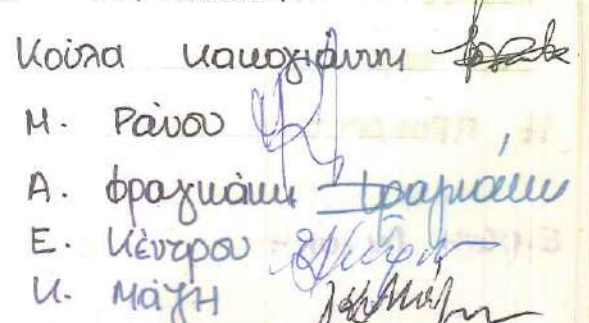 Κούλα Κακογιάννη
Μ. Ράπσου
Α. Φραγκάκη Φραγκάκη
Ε. Κέντρου
Κ. Μάγη